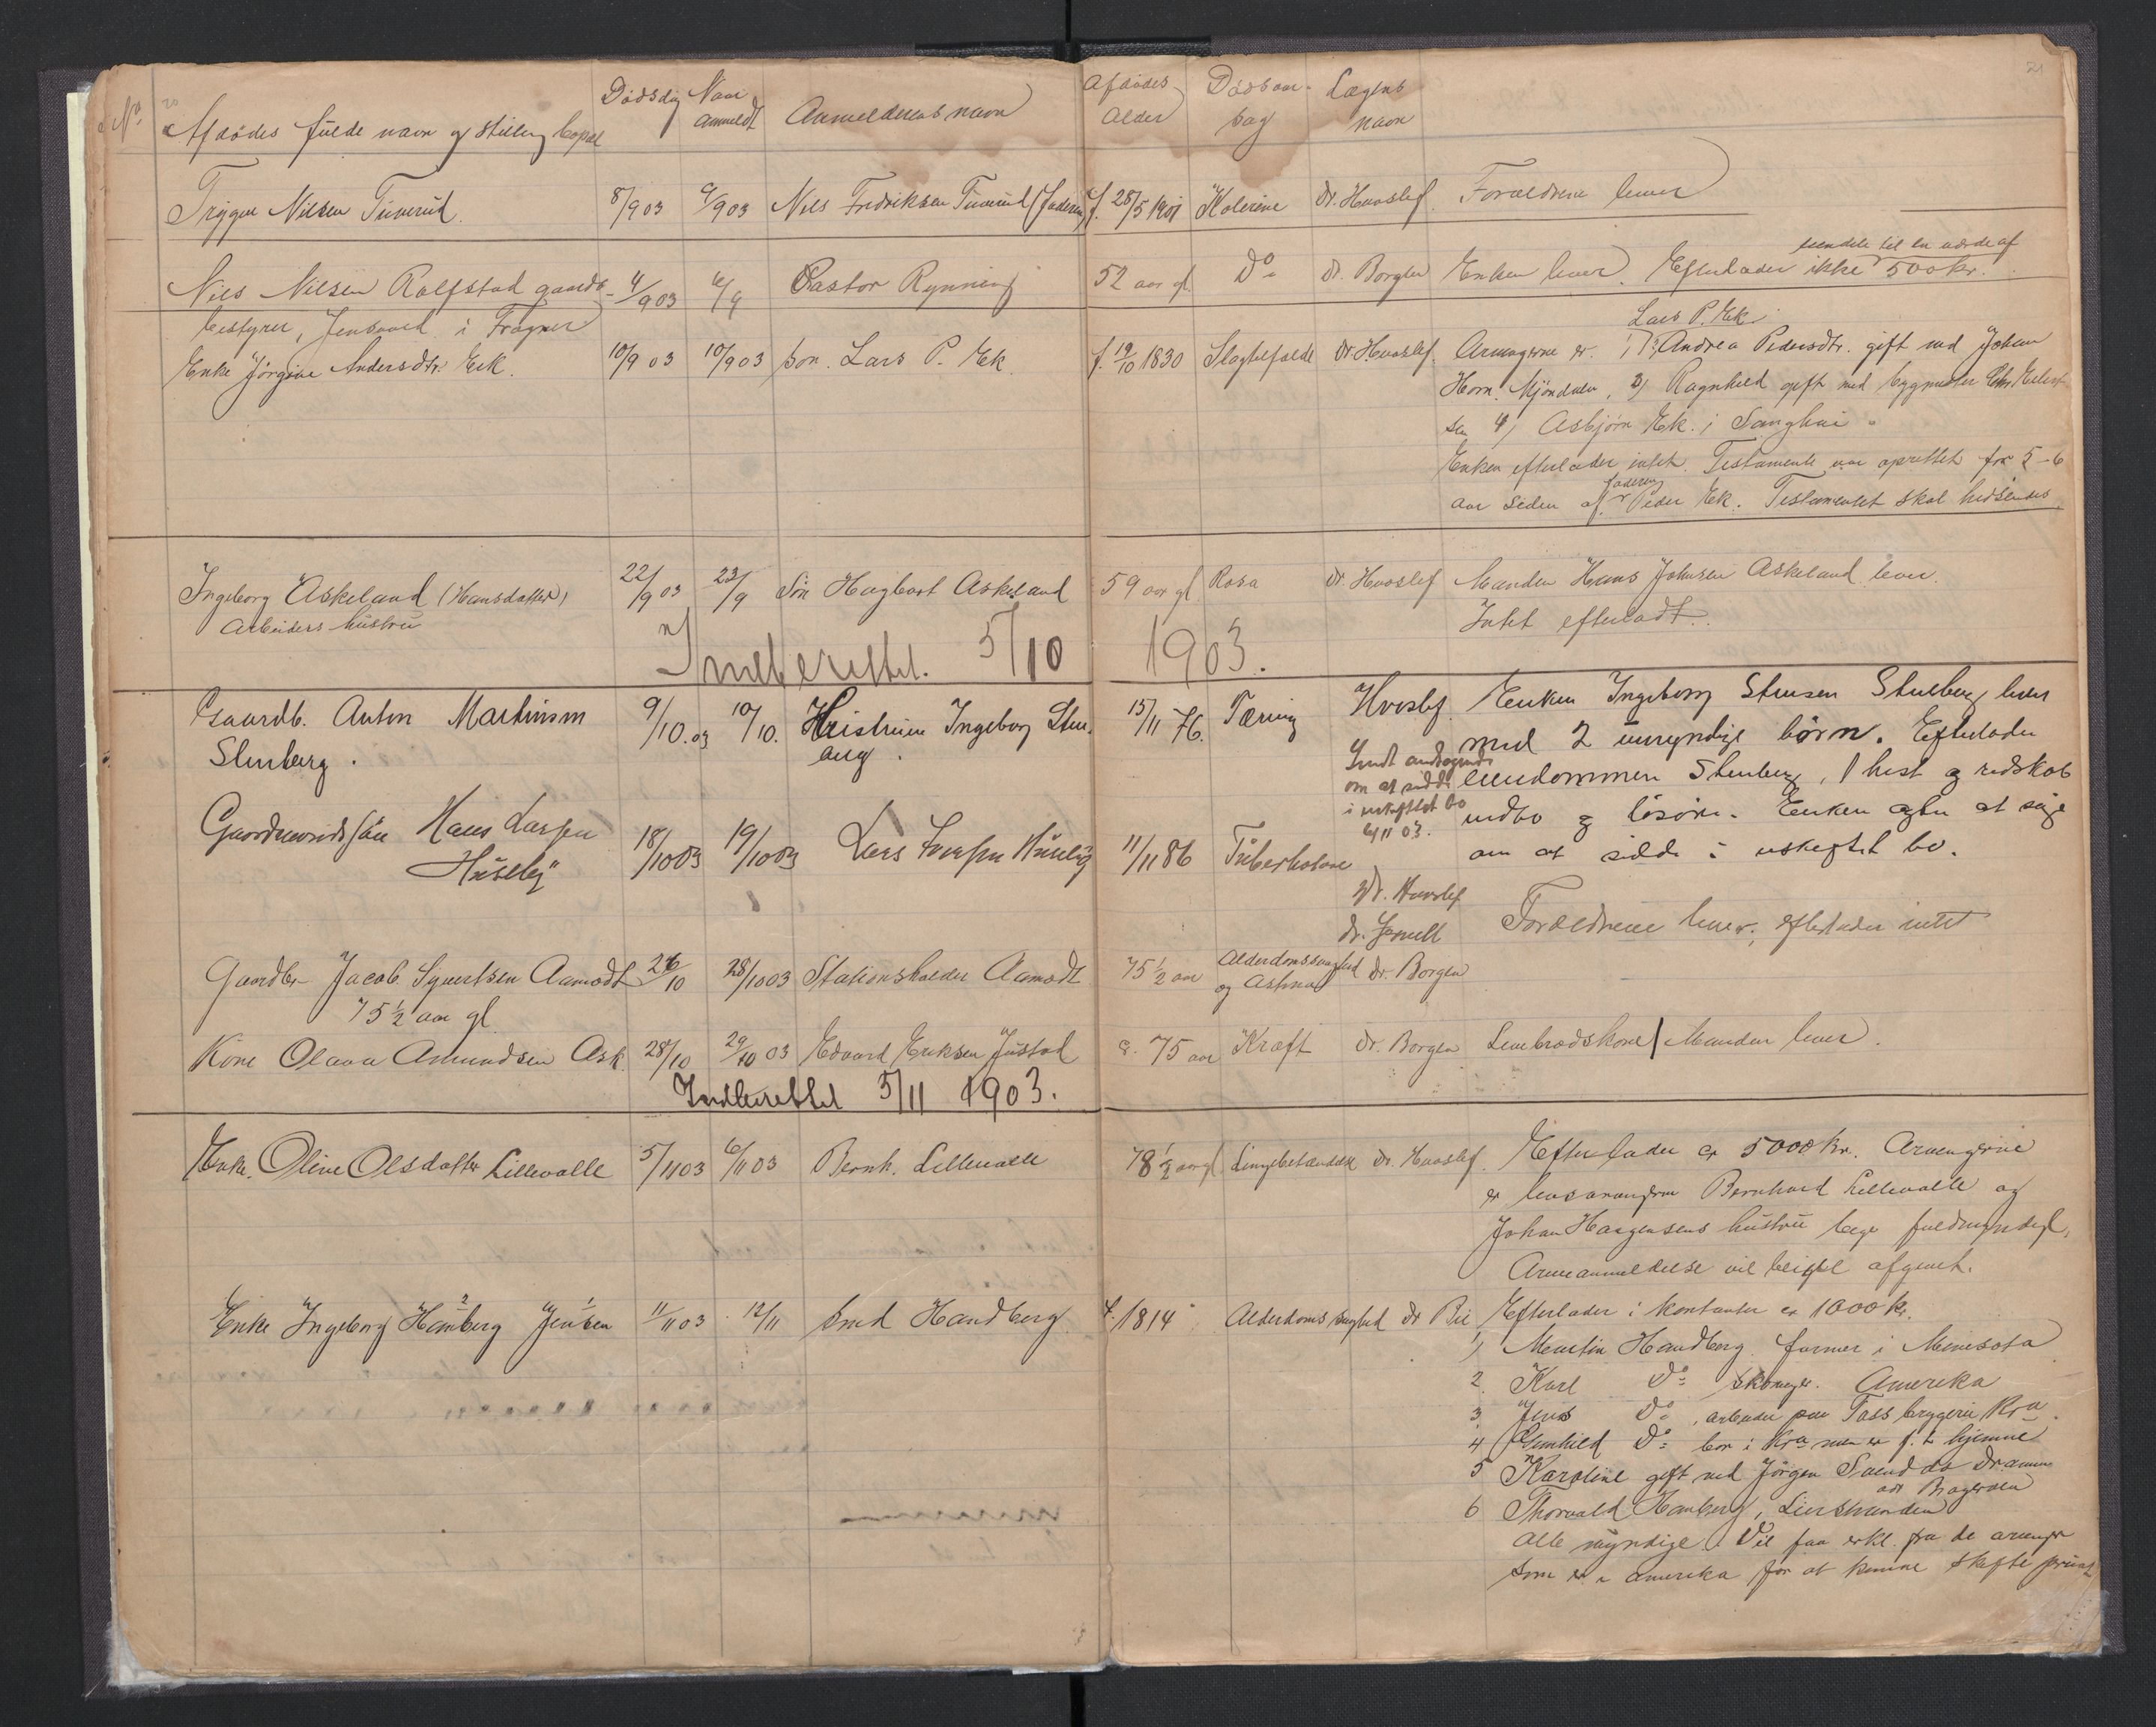 No. Afdødes fulde navn og stilling bopæl Dødsdag Naar anmeldt Anmelderens navn Afdødes Alder Dødsaarsag Lægens navn
20 21
Trygve Nilsen Tuverud 8/9 03 9/9 03 Nils Fredriksen Tuverud (Faderen) f. 28/5 1901 Kolerine dr. Hvoslef Forældrene lever
Nils Nilsen Ralfstad gaards- 4/9 03 6/9 Pastor Rynning 52 aar gl Do dr. Borgen Enken lever. Efterlader ikke eiendele til en værde af 500 kr.
bestyrer, Jensvoll i Frogner
Enke Jørgine Andersdtr. Eek. 10/9 03 10/9 03 søn. Lars P. Ek. f. 19/10 1830 Slagtilfælde dr Hvoslef. Arvingerne er. 1) Lars P. Ek. 2) Andrea Pedersdtr. gift med Johan
Horn. Mjøndalen, 3) Ragnhild gift med bygmester Chr.
sen 4) Asbjørn Ek. i Sanghai.
Enken efterlader intet. Testamente var oprettet for 5-6
aar siden af faderen Peder Ek. Testamentet skal hidsendes
Ingeborg Askeland (Hansdatter) 22/9 03 23/9 Søn Hagbart Askeland 59 aar gl. Rosa dr. Hvoslef Manden Hans Johnsen Askeland lever.
Arbeiders hustru Intet efterladt.
Indberettet. 5/10 1903.
Gaardb. Anton Martinsen 9/10.03 10/10. Hustruen Ingeborg Sten- 15/11 76. Tæring Hvoslef. Enken Ingeborg Stensen Stenberg lever
Stenberg. berg. med 2 umyndige børn. Efterlader
Sendt andragende om at sidde i uskiftet bo 6/11 03.
eiendommen Stenberg, 1 hest og redskab
indbo og løsøre. Enken agter at søge
om at sidde i uskiftet bo.
Gaardmandssøn Hans Larsen 18/10 03 19/10 03 Lars Larsen Huseby 11/11 86 Tuberkolose
Huseby dr. Hvoslef
dr. Forældrene lever, efterlader intet
Gaardbr. Jacob Syvertsen Aamodt 26/10 28/10 03 Stationsholder Aamodt 75 1/2 aar Alderdomssvaghed og Astma dr. Borgen
75 1/2 aar gl
Kone Olava Amundsen Ask. 28/10 29/10 03 Edvard Eriksen Justad c. 75 aar Kræft dr. Borgen Levebrødskone/Manden lever.
Indberettet 5/11 1903.
Enke. Oline Olsdatter Lillevalle 5/11 03 6/11 03 Bernh. Lillevalle 78 1/2 aar gl Lungebetændelse dr. Hvoslef. Efterlader ca 5000 kr. Arvingerne
er Bernhard Lillevalle og
Johan Haagensens hustru begge fuldmyndige.
Arveanmeldelse vil bli afgivet.
Enke Ingeborg Hamberg Jensen 11/11 03 12/11 Smed Handberg f. 1814 Alderdomssvaghed dr Bie Efterlader i kontanter ca 1000 kr.
1) Martin Handberg farmer i Minesota
2. Karl Do skomager. Amerika
3. Jens Do, arbeider paa Foss bryggeri Kra.
4 Gunhild Do bor i Kra men er f.t. hjemme
5 Karoline gift med Jørgen Sand Drammen
6 Thorvald Hanberg, Lierstranden
Alle myndige. Vil faa erkl. fra de arvinger
som er i amerika for at kunne skifte privat